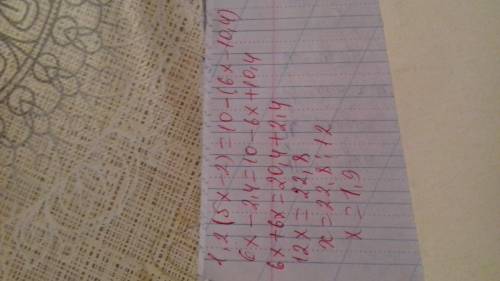 1,2(5x-2)=10-(6x-10,4)
6x-2,4=10-6x+10,4
6x+6x=20,4+2,4
12x=22,8
x=22,8:12
x=1,9